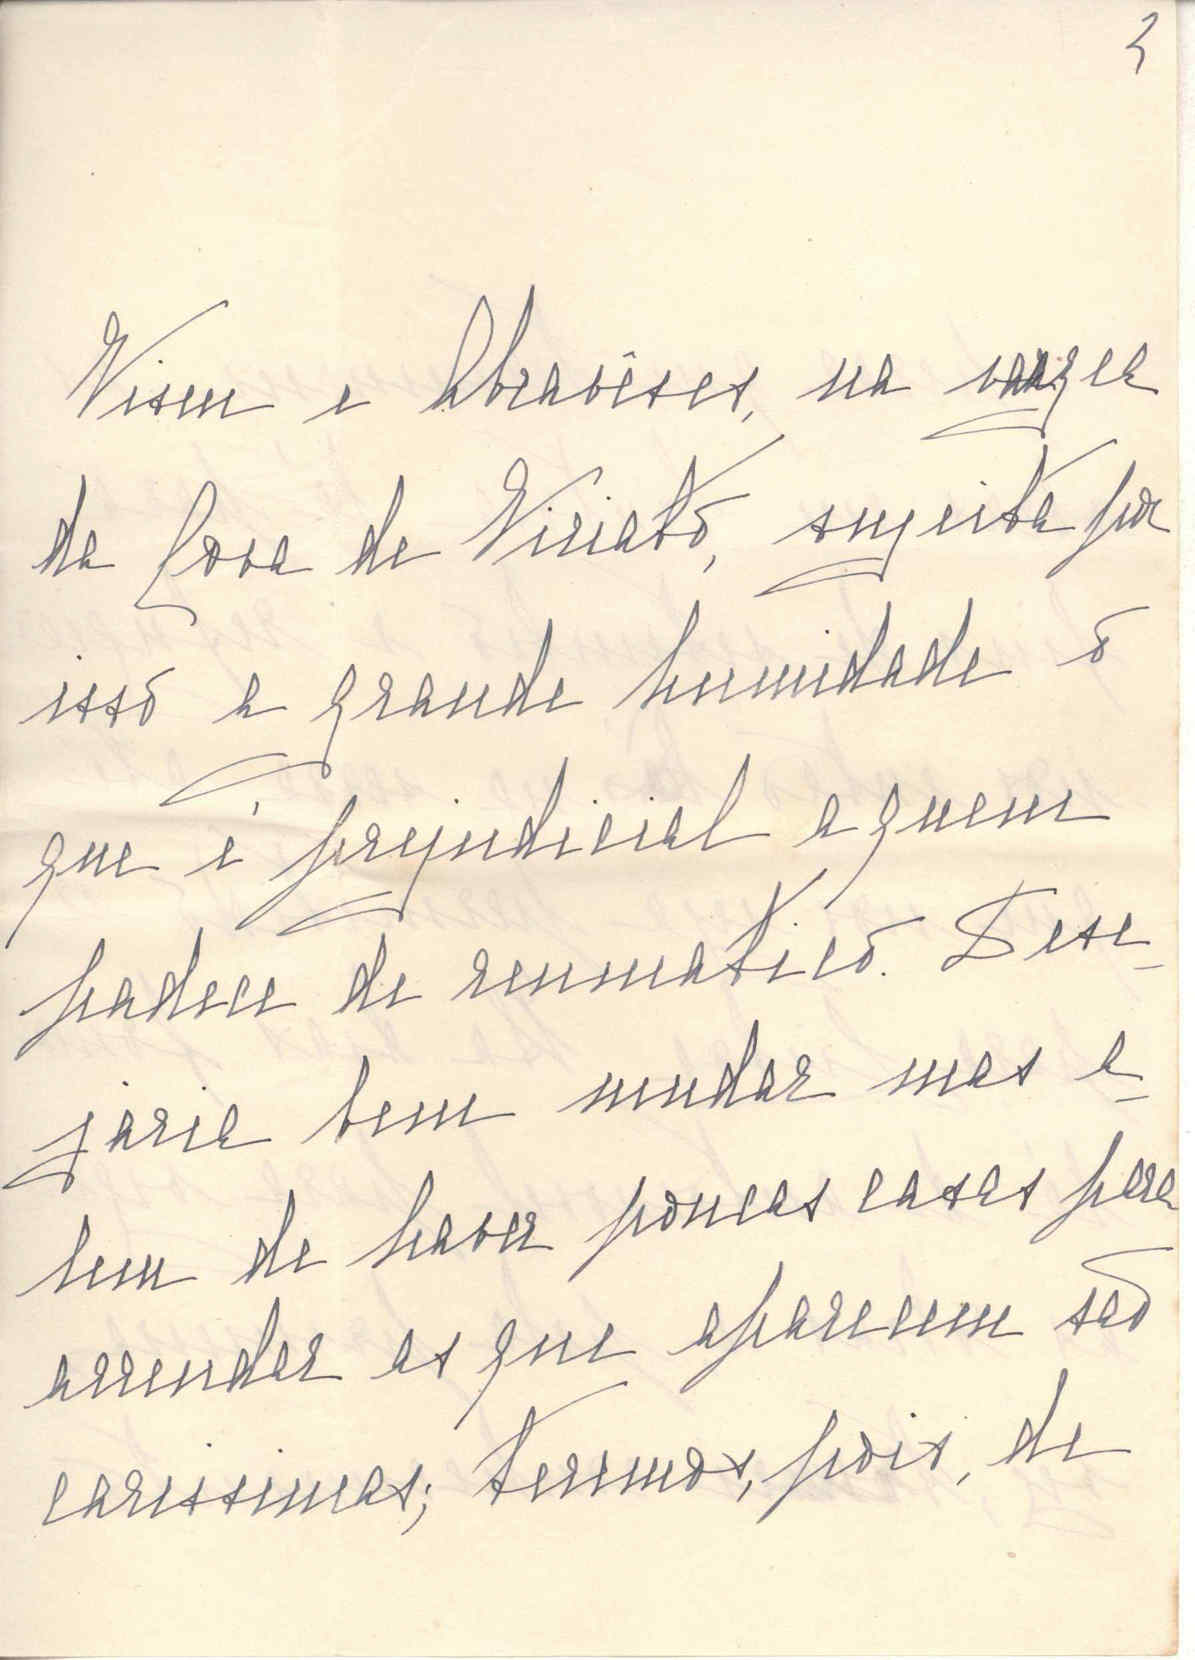 3
Viseu e Abravêses, na vargea
da Cova de Viriato, sugeita por
isso a grande humidade o
que é prejudicial a quem
padece de reumatico. Dese-
jaria bem mudar mas a-
lem de haver poucas casas para
arrendar as que aparecem são
carissimas; teremos, pois, de